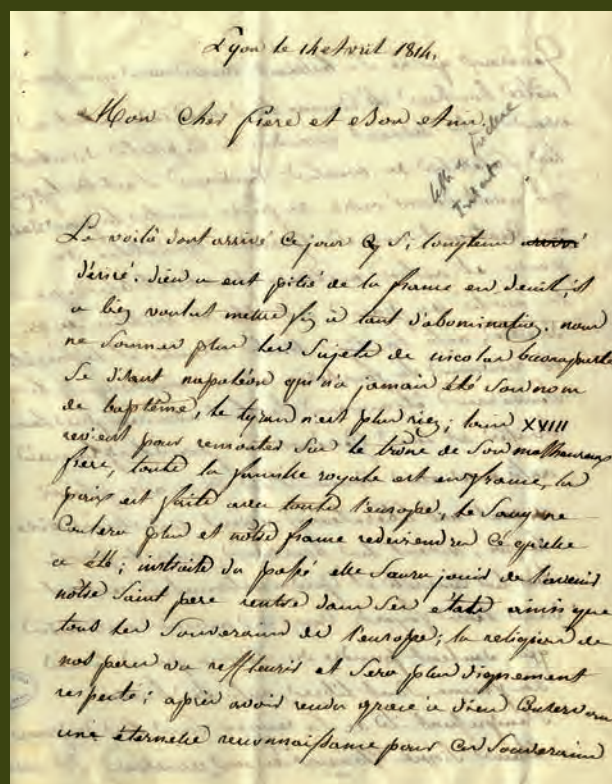 Lyon le 14 Avril 1814,
Mon Cher frere et Bon Ami
Le voilà dont arrivé ce jour si longtems arrivé
désiré. dieu a eut pitié de la france en deuil, il
a bien voulut mettre fin à tant d'abomination. nous
ne sommes plus les sujets de nicolas buonaparte
se disant napoléon qui n'a jamais été son nom
de baptême, le tyran n'est plus rien; louis XVIII
revient pour remonter sur le trône de son malheureux
frere, toute la famille royale est en france, la
paix est faite avec toute l'europe, le sang ne
coulera plus et nôtre france redeviendra ce qu'elle
a été; instruite du passé elle saura jouir de l'avenir
nôtre saint pere rentre dans ses états ainsi que
tous les souverains de l'europe; la religion de
nos peres va reffleurir et sera plus dignement
respecté; après avoir rendu grace à dieu
une éternelle reconnaissance pour ces souverains